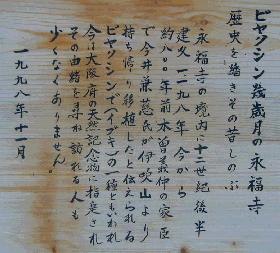 ビヤクシン幾歳月の永福寺
歴史を綴きその昔しのぶ
永福寺の境内に十二世紀後半
建久一一九八年 今から
約八〇〇年前木曽義仲の家臣
で今井兼慈氏が伊吹山より
持ち帰り移植したと伝えられる
ビヤクシンでイブキの一種ともいわれ
今は大阪府の天然記念物に指定され
その由緒を尋ね訪れる人も
少くなくありません。
一九九八年十二月